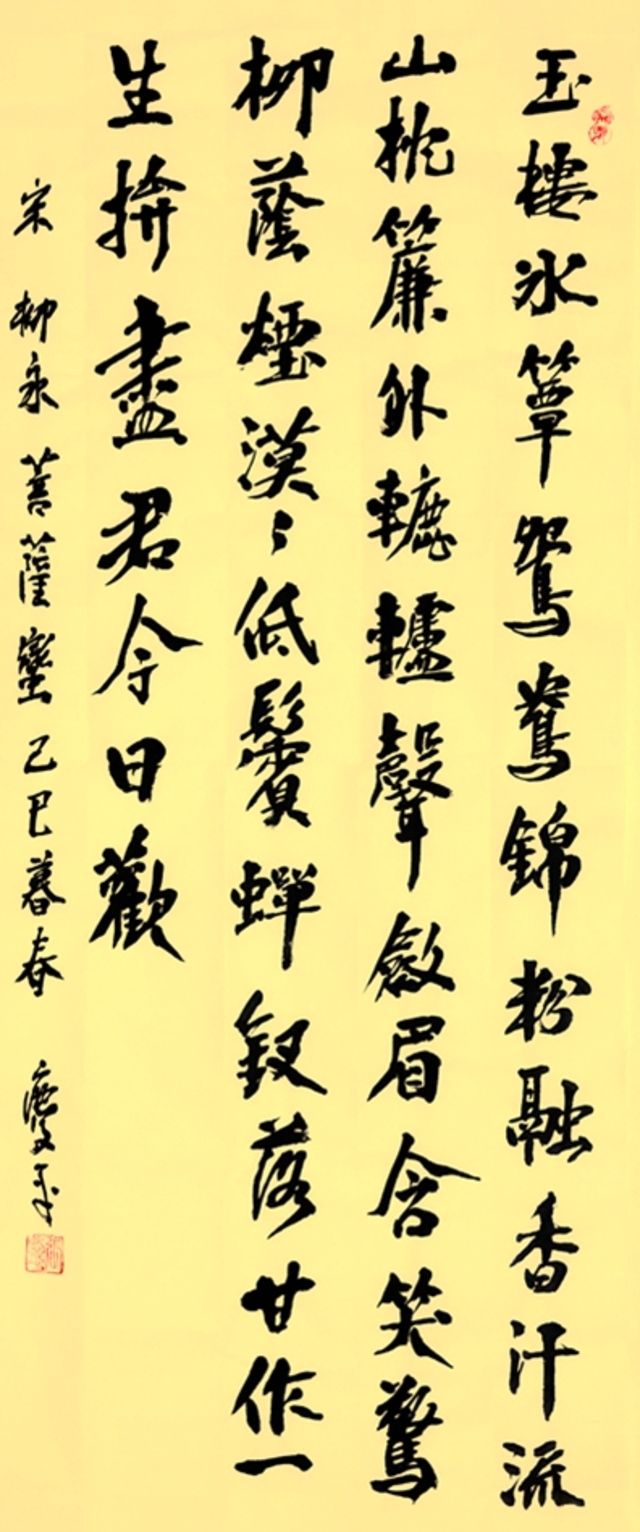 玉樓冰簟鴛鴦錦粉融香汗流
山桃簾外轆轤聲斂眉含笑驚
柳蔭煙漠〻低鬢蟬釵落甘作一
生拚盡君今日歡
宋 柳永 菩薩蠻 己巳暮春